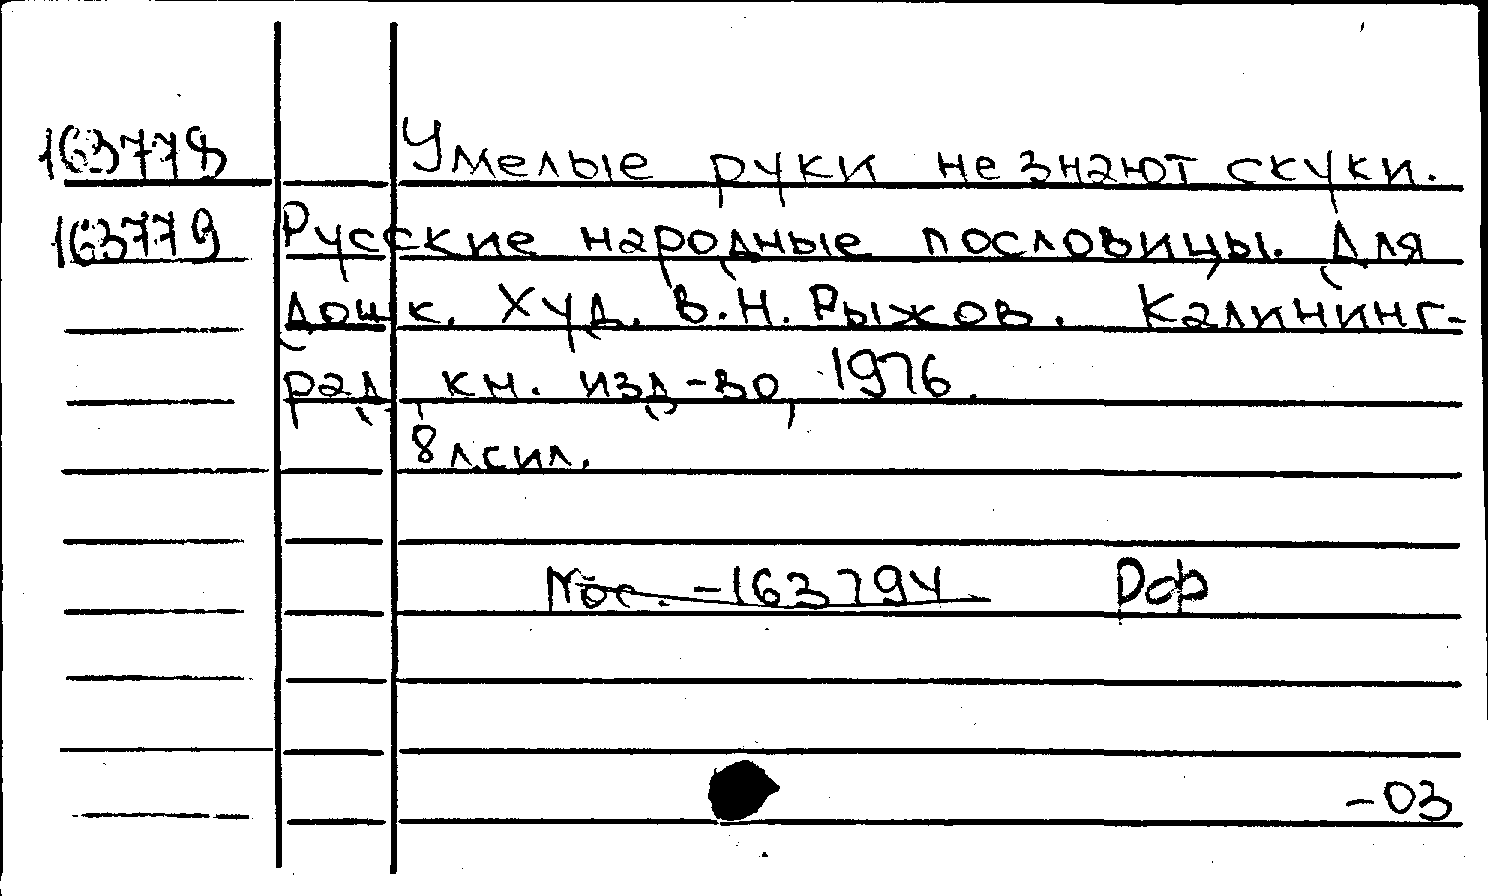 163778 Умелые руки не знают скуки.
163779 Русские народные пословицы. Для
дошк. Худ. В.Н. Рыжов. Калининг-
рад, кн. изд-во, 1976.
8 л. с ил.
-163794
-03